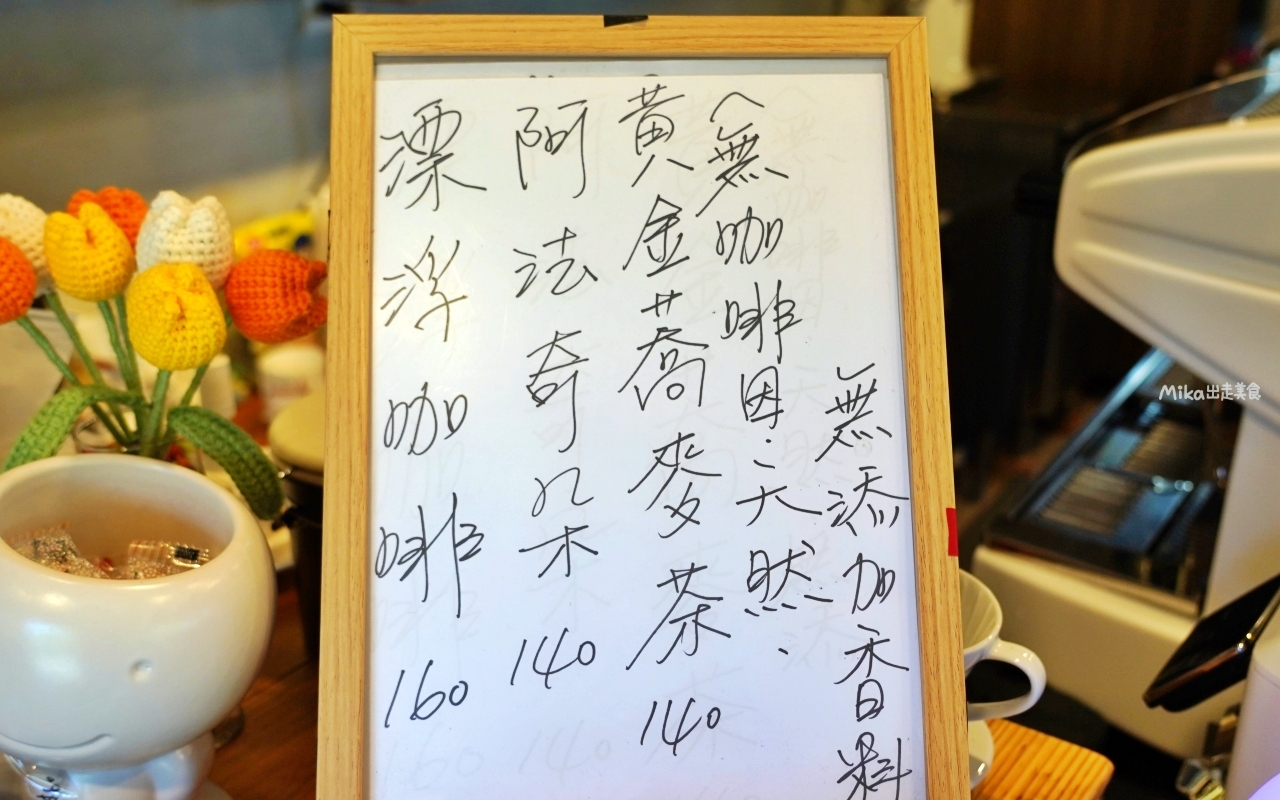 漂浮咖啡 160
阿法奇朵 140
黃金蕎麥茶 140
(無咖啡因.天然.
無添加香料
Mika出走美食